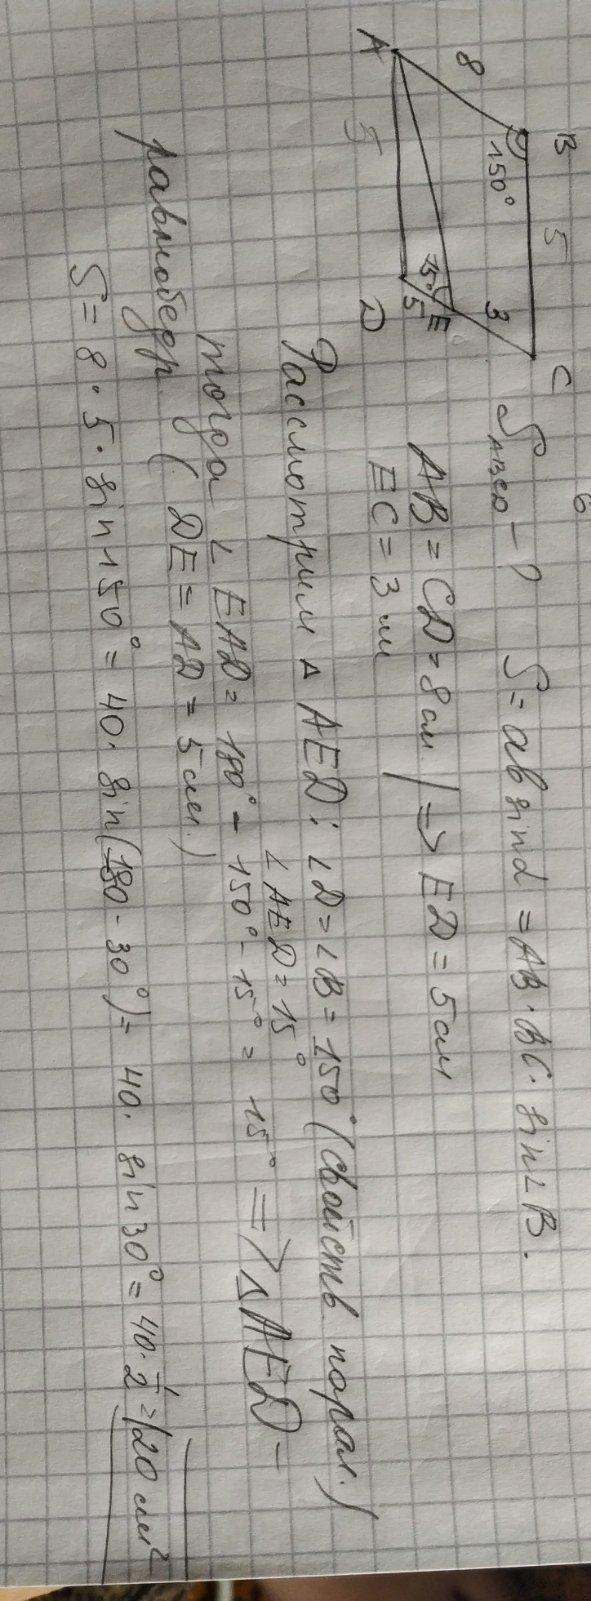 6
B 5 C
8 150° 3
A 15° E
5 5
D
S ABCD - ? S = ab sin α = AB · BC · sin ∠B.
AB = CD = 8 см | => ED = 5 см
EC = 3 см
Рассмотрим △ AED: ∠D = ∠B = 150° (свойств. парал.)
∠AED = 15°
тогда ∠EAD = 180° - 150° - 15° = 15° => △AED -
равнобедр. (DE = AD = 5 см.)
S = 8 · 5 · sin 150° = 40 · sin(180 - 30°) = 40 · sin 30° = 40 · 1/2 = 20 см²